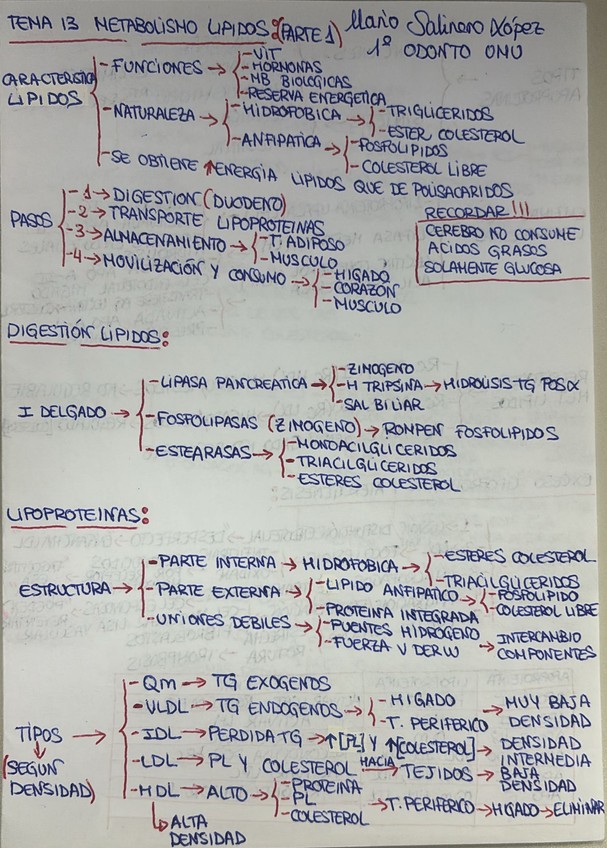 TEMA 13 METABOLISMO LIPIDOS: (PARTE 1) Mario Salinero López
1º ODONTO ONU
CARACTERISTICA LIPIDOS
- FUNCIONES → - VIT
- HORMONAS
- MB BIOLOGICAS
- RESERVA ENERGETICA
- NATURALEZA → - HIDROFOBICA → - TRIGLICERIDOS
- ESTER COLESTEROL
- ANFIPATICA → - FOSFOLIPIDOS
- COLESTEROL LIBRE
- SE OBTIENE ↑ENERGIA LIPIDOS QUE DE POLISACARIDOS
PASOS
- 1 → DIGESTION (DUODENO)
- 2 → TRANSPORTE LIPOPROTEINAS
- 3 → ALMACENAMIENTO → - T. ADIPOSO
- MUSCULO
- 4 → MOVILIZACIÓN Y CONSUMO → - HIGADO
- CORAZÓN
- MUSCULO
RECORDAR!!!
CEREBRO NO CONSUME
ACIDOS GRASOS
SOLAMENTE GLUCOSA
DIGESTIÓN LIPIDOS:
I DELGADO →
- LIPASA PANCREATICA → - ZIMOGENO
- H TRIPSINA → HIDROLISIS-TG POSIX
- SAL BILIAR
- FOSFOLIPASAS (ZIMOGENO) → ROMPEN FOSFOLIPIDOS
- ESTEARASAS → - MONOACILGLICERIDOS
- TRIACILGLICERIDOS
- ESTERES COLESTEROL
LIPOPROTEINAS:
ESTRUCTURA →
- PARTE INTERNA → HIDROFOBICA → - ESTERES COLESTEROL
- TRIACILGLICERIDOS
- PARTE EXTERNA → - LIPIDO ANFIPATICO → - FOSFOLIPIDO
- COLESTEROL LIBRE
- PROTEÍNA INTEGRADA
- UNIONES DEBILES → - PUENTES HIDROGENO
- FUERZA V DER W → INTERCAMBIO COMPONENTES
TIPOS →
↓
(SEGUN DENSIDAD)
- Qm → TG EXOGENOS
- VLDL → TG ENDOGENOS → - HIGADO
- T. PERIFERICO → MUY BAJA DENSIDAD
- IDL → PERDIDA TG → ↑[PL] Y ↑[COLESTEROL] → DENSIDAD INTERMEDIA
- LDL → PL Y COLESTEROL HACIA → TEJIDOS → BAJA DENSIDAD
- HDL → ALTO → - PROTEINA
- PL
- COLESTEROL → T. PERIFERICO → HIGADO → ELIMINAR
↳ ALTA DENSIDAD